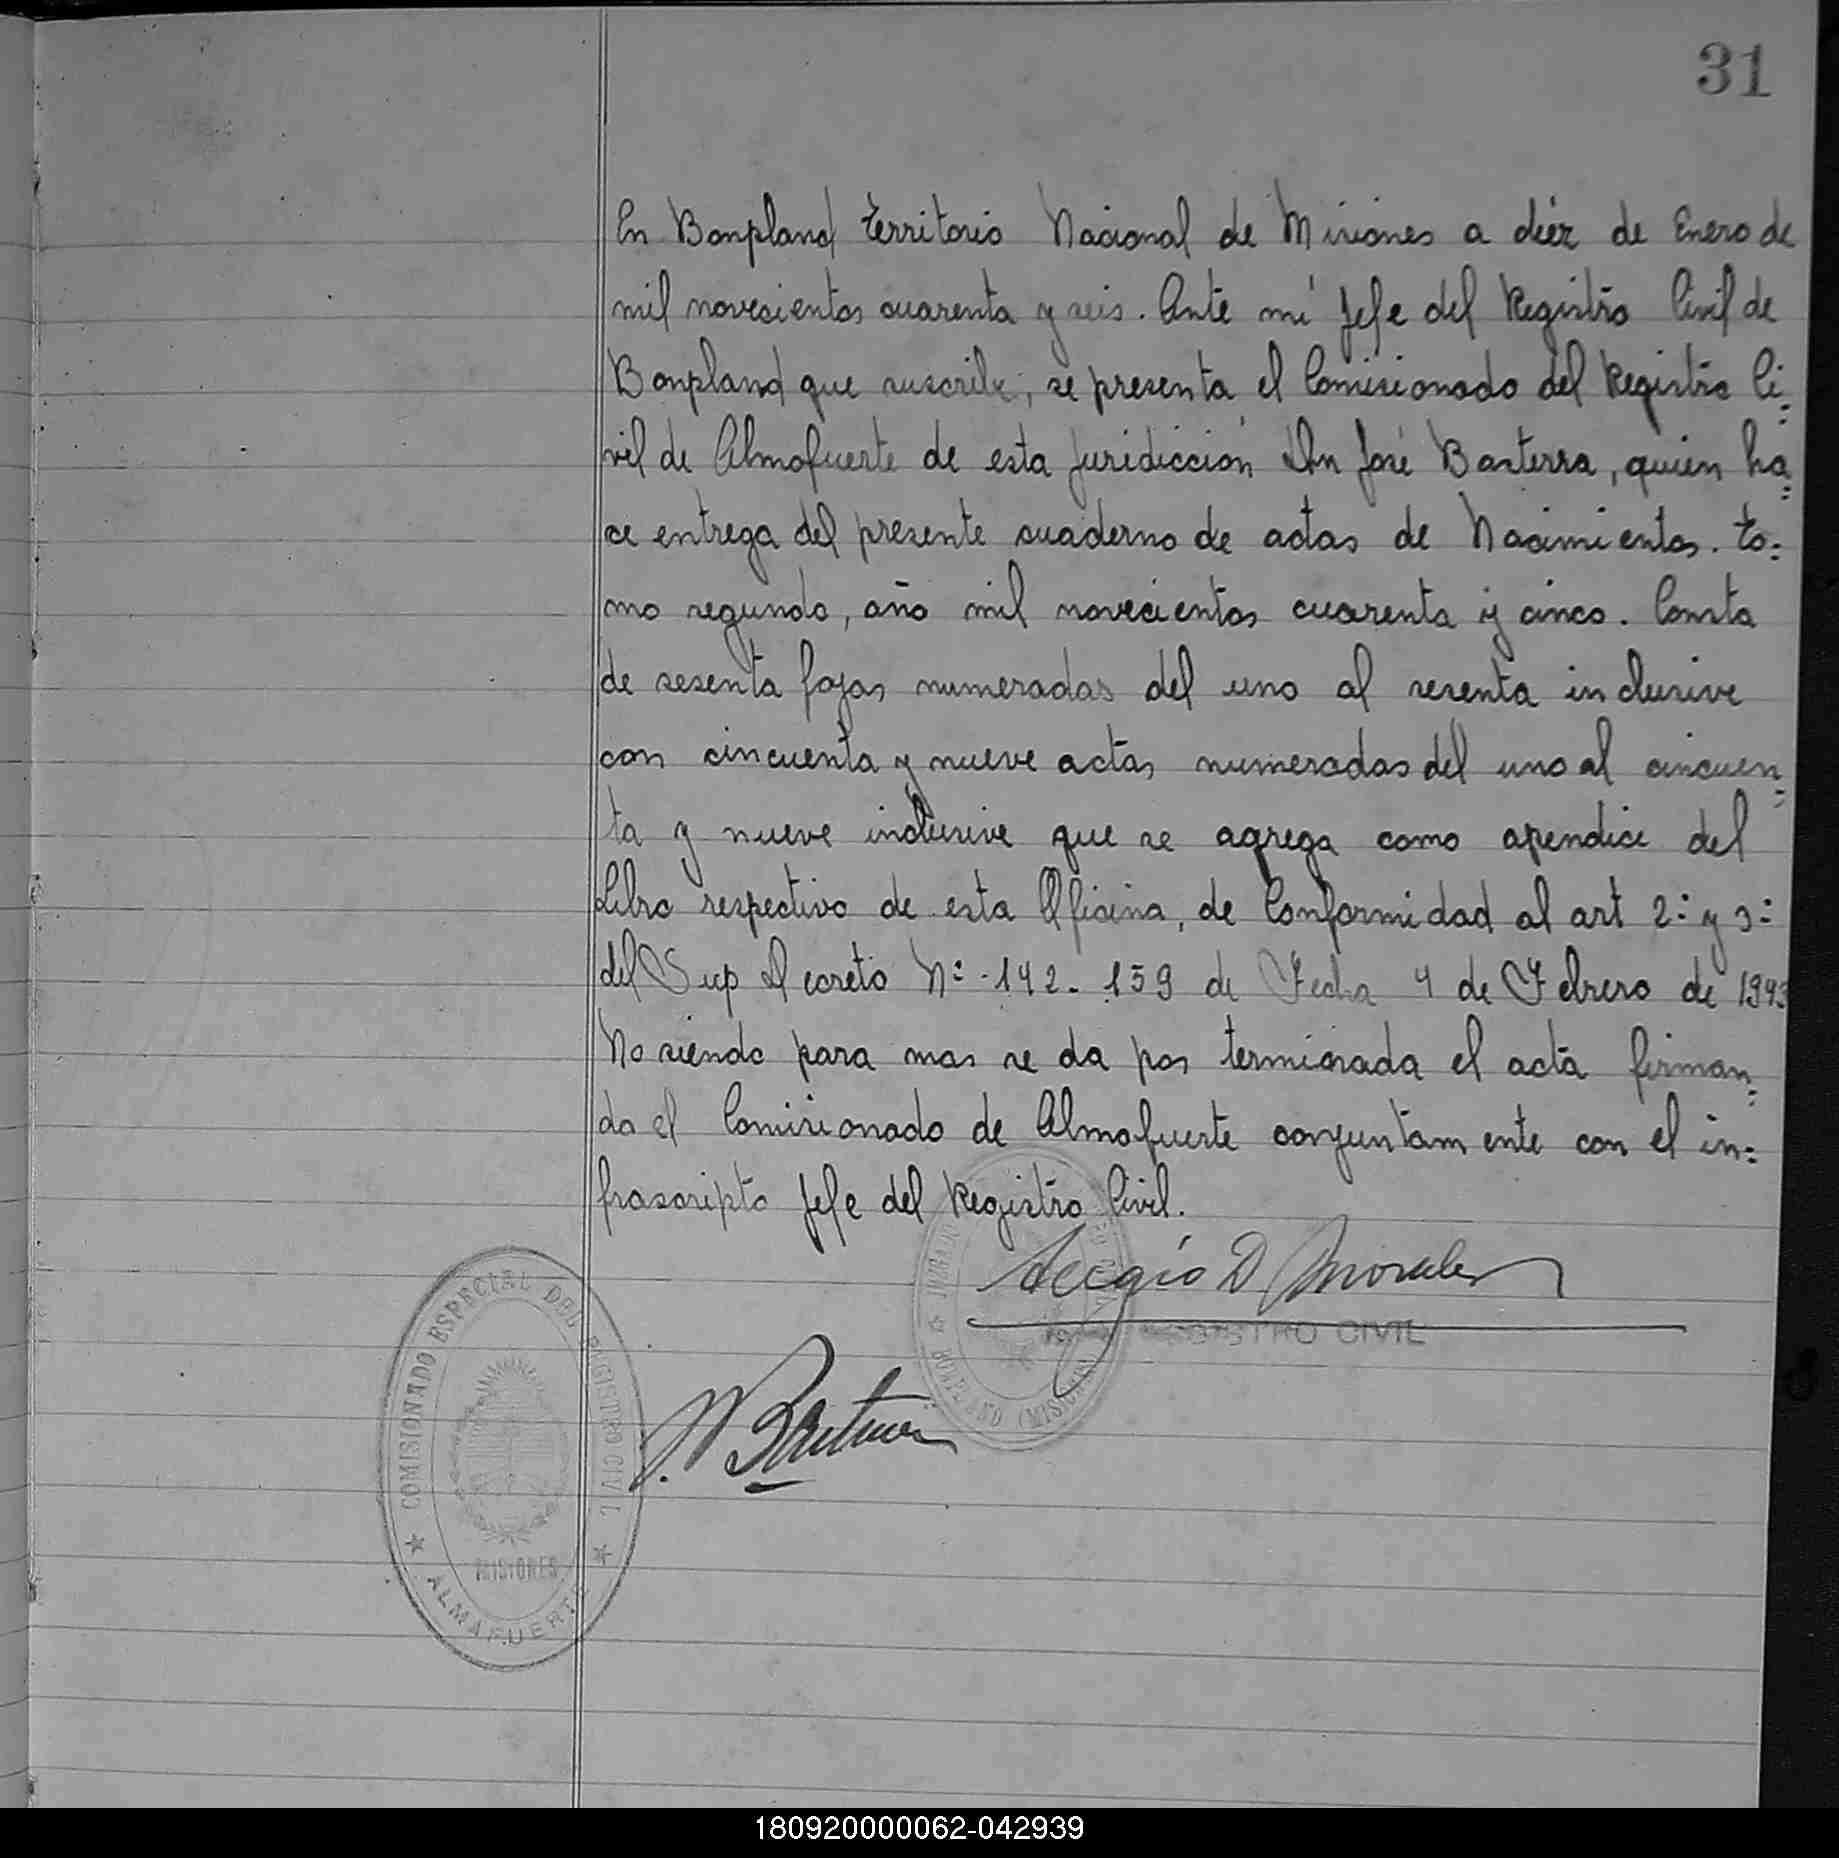 31
En Bonpland territorio Nacional de Misiones a diéz de Enero de
mil novecientos cuarenta y seis. Ante mi Jefe del Registro Civil de
Bonpland que suscribe, se presenta el Comisionado del Registro Ci=
vil de Almafuerte de esta Juridicción Don José Basterra, quien ha=
ce entrega del presente cuaderno de actas de Nacimientos. to=
mo segundo, año mil novecientos cuarenta y cinco. Consta
de sesenta fojas numeradas del uno al sesenta inclusive
con cincuenta y nueve actas numeradas del uno al cincuen=
ta y nueve inclusive que se agrega como apendice del
Libro respectivo de esta Oficina, de Conformidad al art 2º y 3º
del Sup Decreto Nº 142.159 de Fecha 4 de Febrero de 1943
No siendo para mas se da por terminada el acta firman=
do el Comisionado de Almafuerte conjuntamente con el in=
frascripto Jefe del Registro Civil.
Sergio D Morales
REGISTRO CIVIL
JUZGADO
BONPLAND (MISIONES)
COMISIONADO ESPECIAL DEL REGISTRO CIVIL
MISIONES
ALMAFUERTE
180920000062-042939